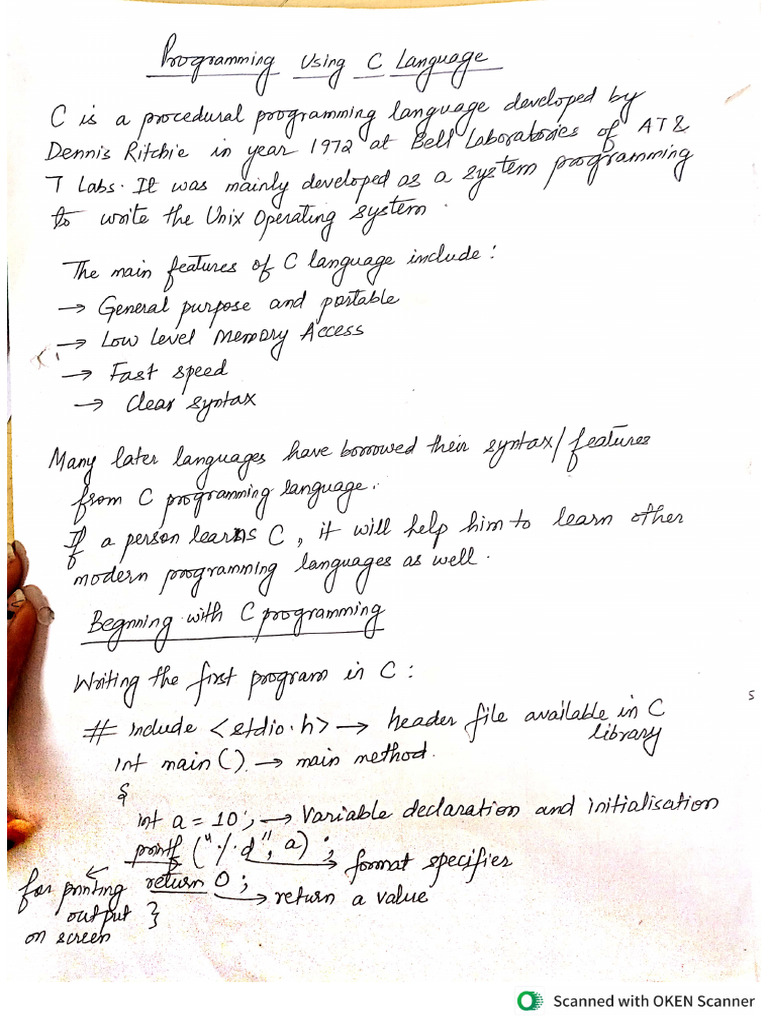 Programming Using C Language
C is a procedural programming language developed by
Dennis Ritchie in year 1972 at Bell Laboratories of AT&
T Labs. It was mainly developed as a system programming
to write the Unix Operating system.
The main features of C language include:
→ General purpose and portable
→ Low Level Memory Access
→ Fast speed
→ Clear syntax
Many later languages have borrowed their syntax/features
from C programming language.
If a person learns C, it will help him to learn other
modern programming languages as well.
Begnning with C programming
Writing the first program in C:
# include <stdio.h> → header file available in C
library
int main() → main method.
{
int a = 10; → Variable declaration and initialisation
printf ("%d", a); → format specifier
for printing return 0; → return a value
output }
on screen
5
Scanned with OKEN Scanner